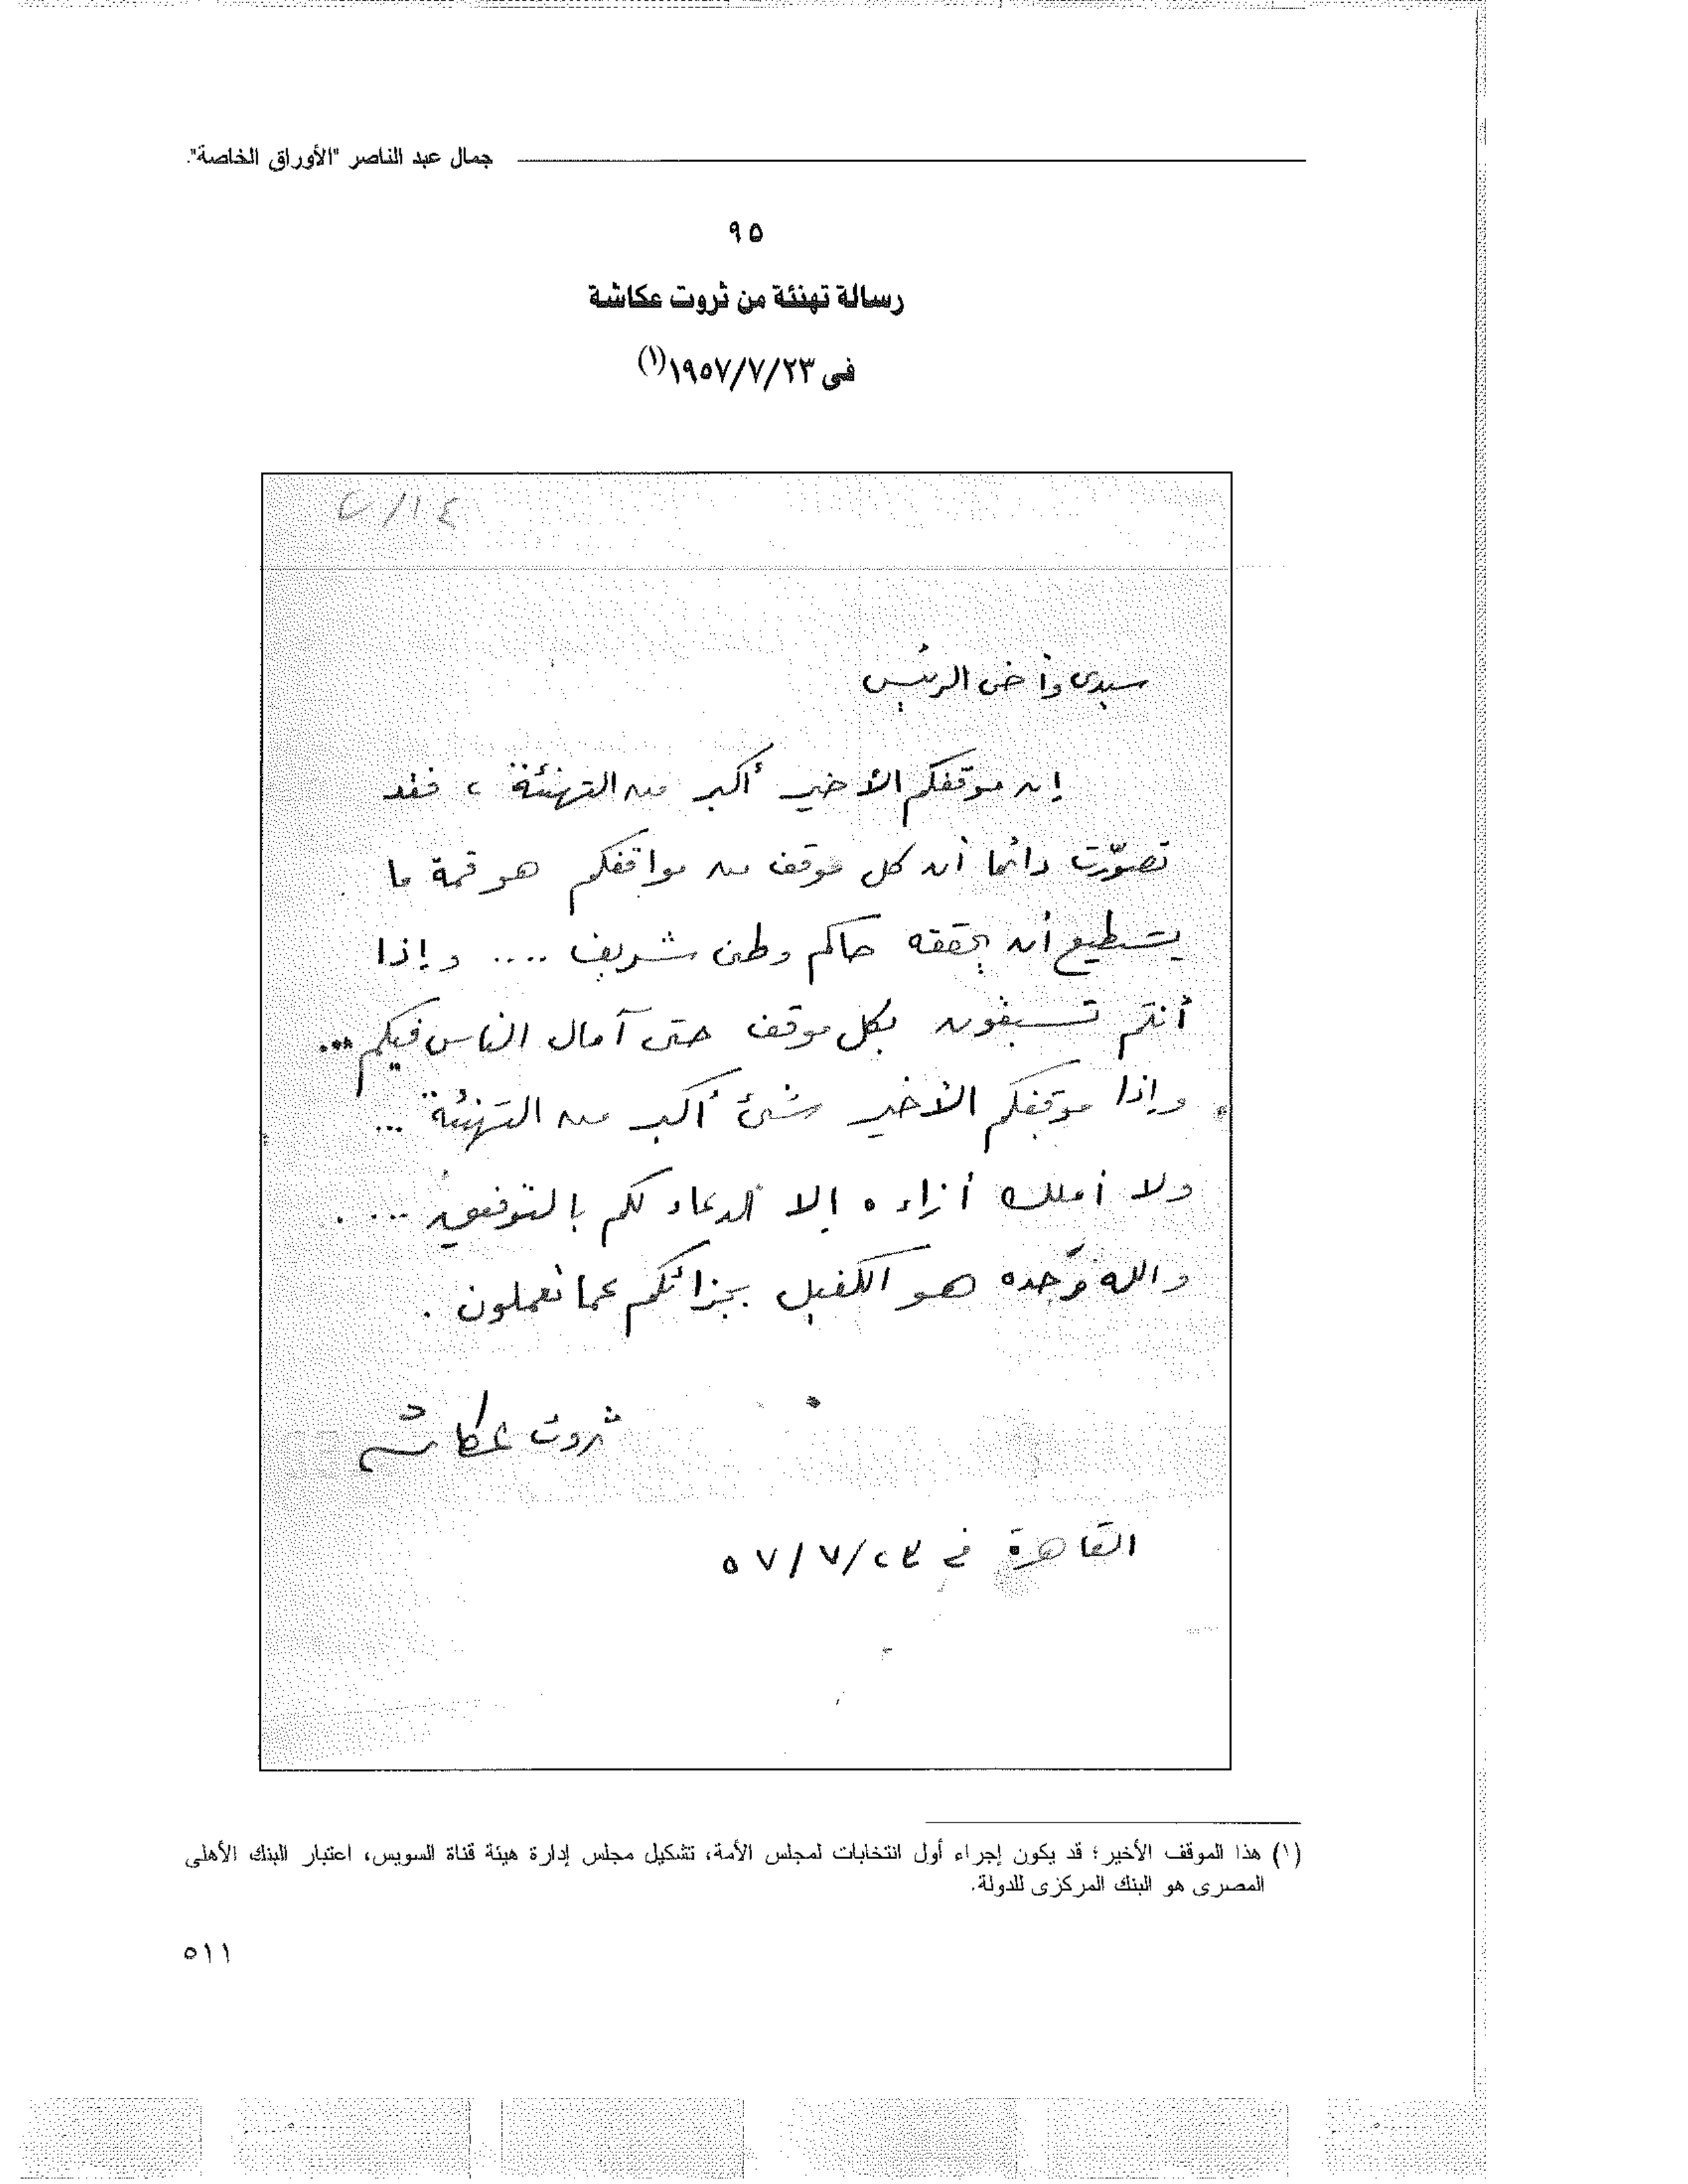 جمال عبد الناصر "الأوراق الخاصة".
٩٥
رسالة تهنئة من ثروت عكاشة
فى ١٩٥٧/٧/٢٣(١)
سيدى وأخى الرئيس
إن موقفكم الأخير أكبر من التهنئة ، فقد
تصوّرت دائما أن كل موقف من مواقفكم هو قمة ما
يستطيع أن يحققه حاكم وطنى شريف .... وإذا
أنتم تسبقون بكل موقف حتى آمال الناس فيكم ...
وإذا موقفكم الأخير شئ أكبر من التهنئة ...
ولا أملك أزاءه إلا الدعاء لكم بالتوفيق ....
والله وحده هو الكفيل بجزائكم عما تعملون .
ثروت عكاشه
القاهرة فى ٢٣/٧/٥٧
(١) هذا الموقف الأخير؛ قد يكون إجراء أول انتخابات لمجلس الأمة، تشكيل مجلس إدارة هيئة قناة السويس، اعتبار البنك الأهلى
المصرى هو البنك المركزى للدولة.
٥١١